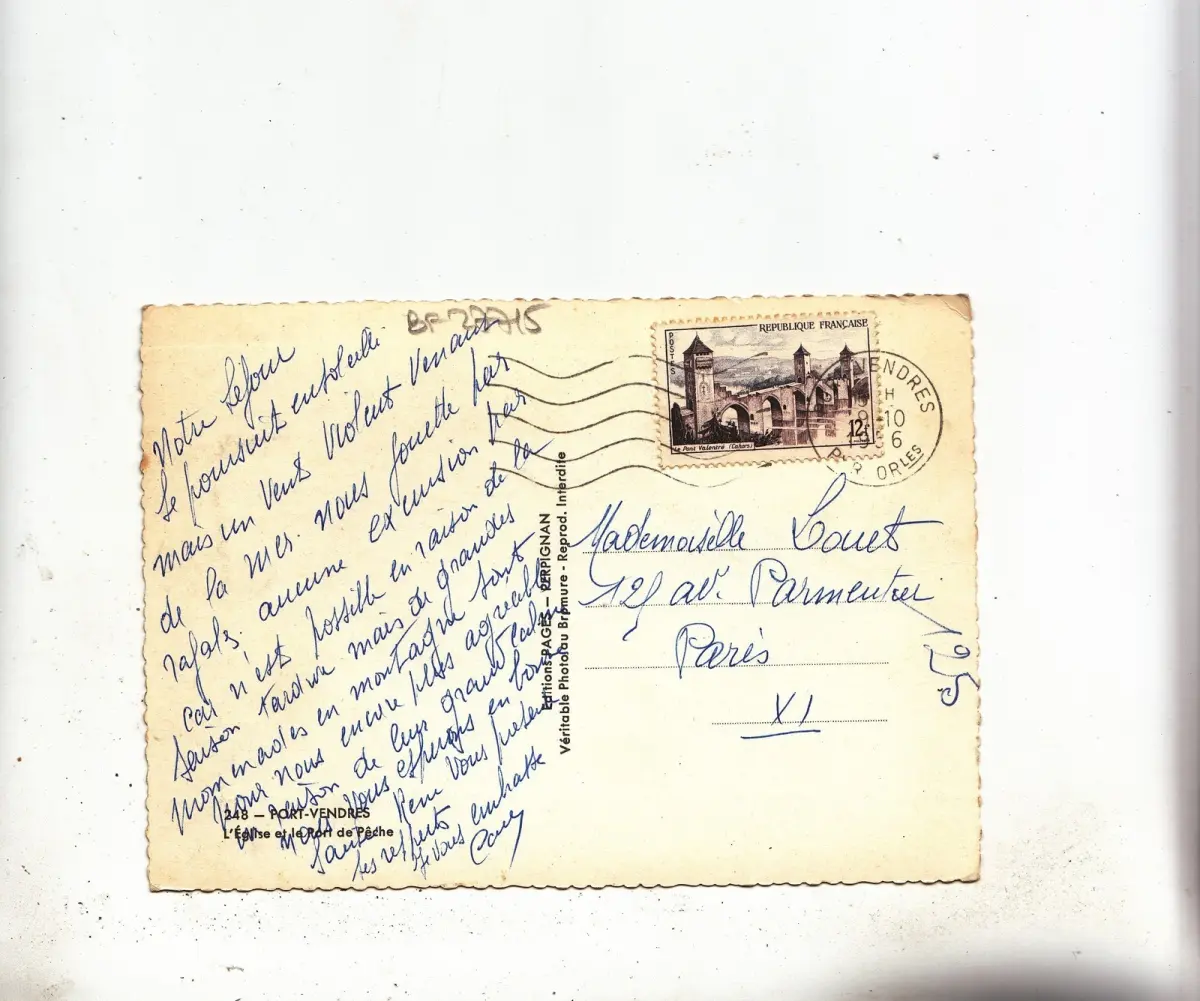 BF 27715
Notre Séjour
se poursuit ensoleillé
mais un vent violent venant
de la mer nous fouette par
rafales. aucune excursion par
car n'est possible en raison de la
saison tardive mais de grandes
promenades en montagne sont
pour nous encore plus agréables
en raison de leur grand calme
nous vous espérons en bonne
santé René vous présente
ses respects
je vous embrasse
248 — PORT-VENDRES
L'Église et le Port de Pêche
Editions PAGES — PERPIGNAN
Véritable Photo au Bromure - Reprod. Interdite
REPUBLIQUE FRANÇAISE
POSTES
12F
Le Pont Valentré (Cahors)
VENDRES
H
9 - 10
19 6
PYR. ORLES
Mademoiselle Louet
125 av. Parmentier
Paris
XI
125